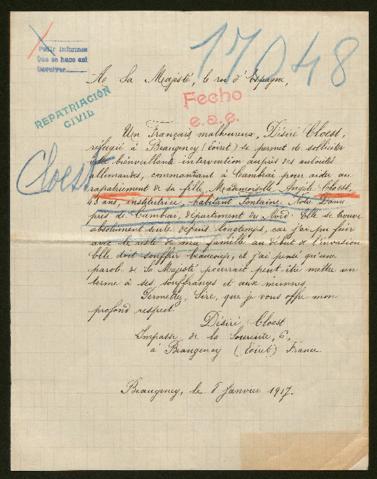 17048
Pedir informes
Que se hace asi
REPATRIACIÓN
CIVIL
Fecho
e.a.e.
Cloest
A Sa Majesté, le roi d'Espagne,
Un Français malheureux, Désiré Cloest,
réfugié à Beaugency (Loiret) se permet de solliciter
votre bienveillante intervention auprès des autorités
allemandes, commandant à Cambrai pour aider au
rapatriement de sa fille, Mademoiselle Cloest,
43 ans, institutrice, habitant Fontaine Notre Dame
près de Cambrai, département du Nord. Elle se trouve
absolument seule depuis longtemps, car j'ai pu fuir
avec le reste de ma famille au début de l'invasion
Elle doit souffrir beaucoup, et j'ai pensé qu'une
parole de Sa Majesté pourrait peut-être mettre un
terme à ses souffrances et aux miennes.
Permettez, Sire, que je vous offre mon
profond respect.
Désiré Cloest
Impasse de la 6,
à Beaugency (Loiret) France
Beaugency, le 8 Janvier 1917.